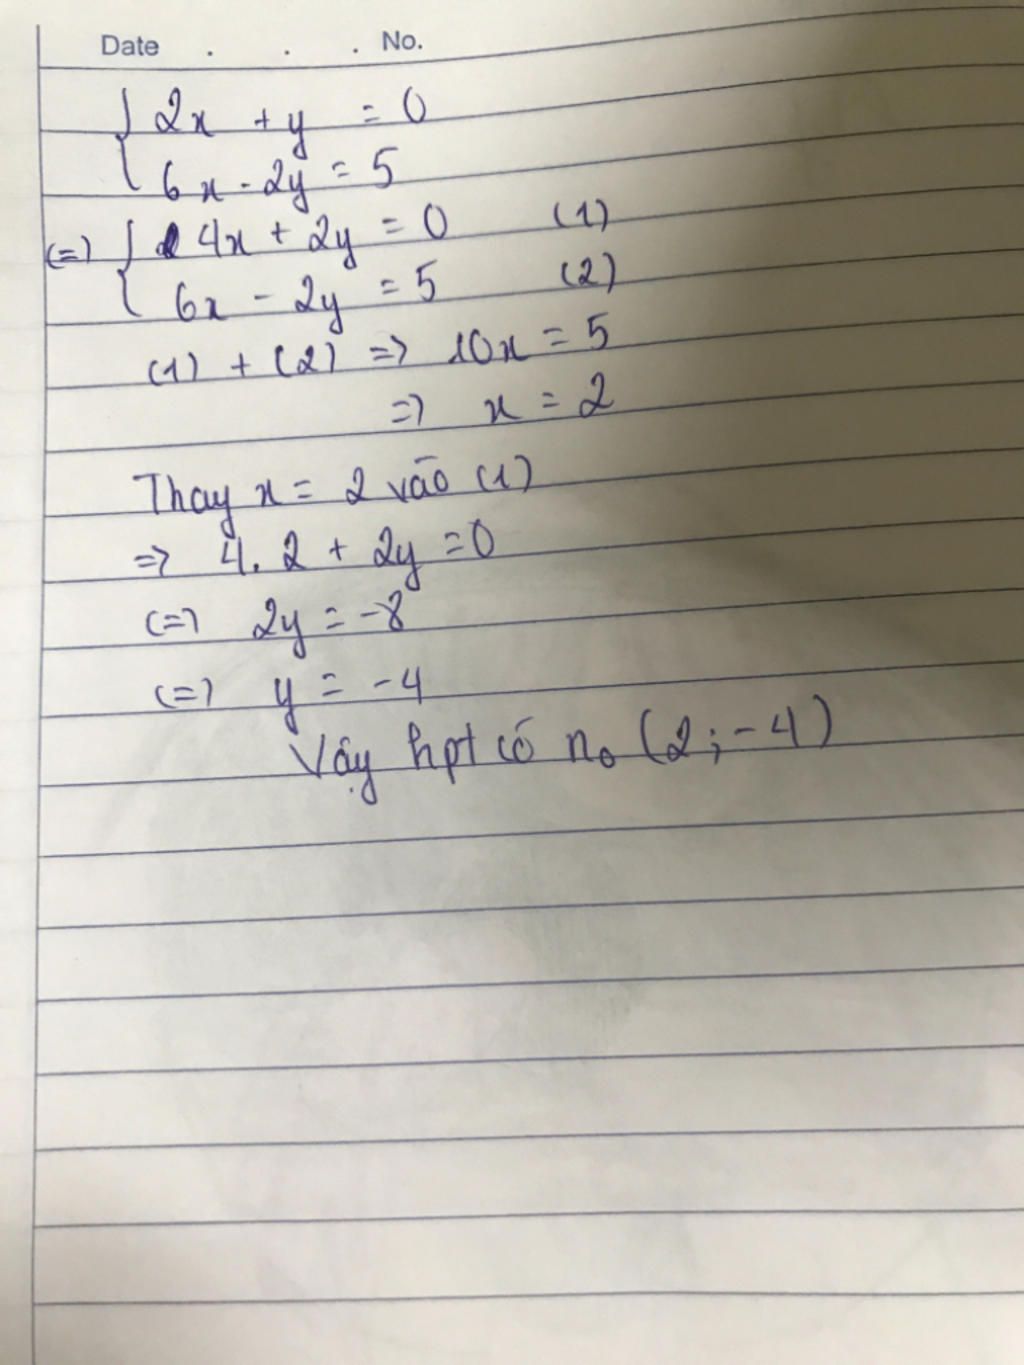 Date . . . No.
{ 2x + y = 0
6x - 2y = 5
(=) { 4x + 2y = 0 (1)
6x - 2y = 5 (2)
(1) + (2) => 10x = 5
=> x = 2
Thay x = 2 vào (1)
=> 4. 2 + 2y = 0
(=) 2y = -8
(=) y = -4
Vậy hpt có no (2 ; -4)